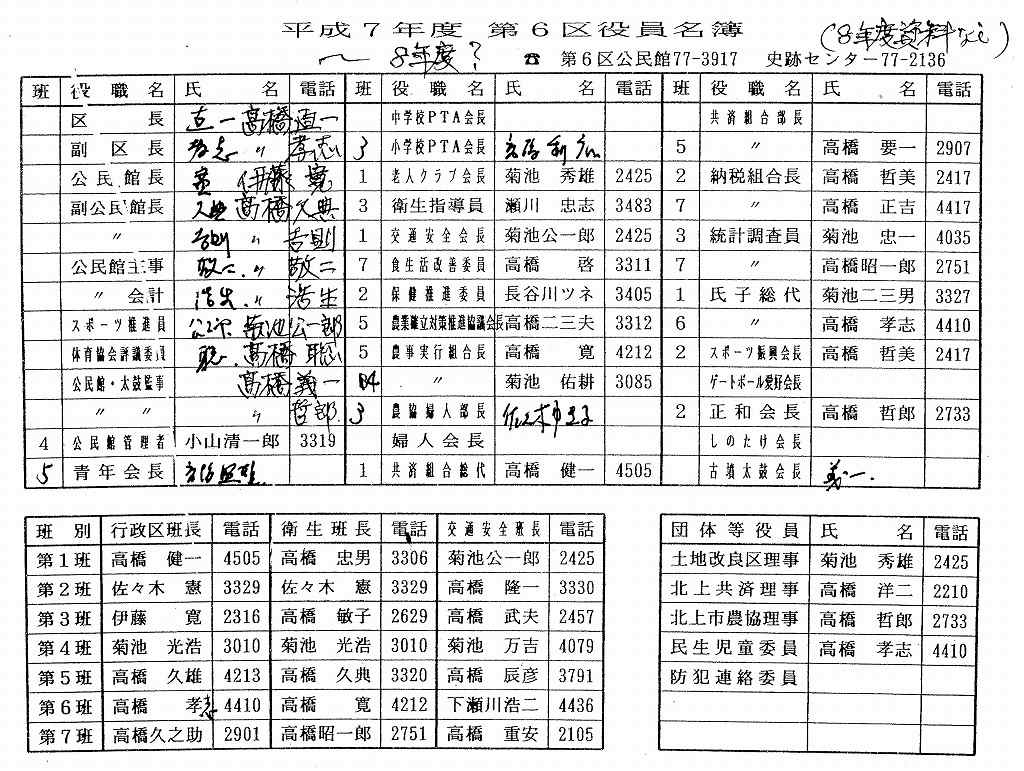 平成7年度 第6区役員名簿 (8年度資料なし)
〜 8年度? ☎ 第6区公民館77-3917 史跡センター77-2136
班 役職名 氏名 電話 班 役職名 氏名 電話 班 役職名 氏名 電話
区長 直一 高橋直一 中学校PTA会長 共済組合部長
副区長 孝志 〃 孝志 3 小学校PTA会長 5 〃 高橋 要一 2907
公民館長 寛 伊藤 寛 1 老人クラブ会長 菊池 秀雄 2425 2 納税組合長 高橋 哲美 2417
副公民館長 久典 高橋久典 3 衛生指導員 瀬川 忠志 3483 7 〃 高橋 正吉 4417
〃 吉則 〃 吉則 1 交通安全会長 菊池公一郎 2425 3 統計調査員 菊池 忠一 4035
公民館主事 敬二 〃 敬二 7 食生活改善委員 高橋 啓 3311 7 〃 高橋昭一郎 2751
〃 会計 浩生 〃 浩生 2 保健推進委員 長谷川ツネ 3405 1 氏子総代 菊池二三男 3327
スポーツ推進員 公一郎 菊池公一郎 5 農業確立対策推進協議会長 高橋二三夫 3312 6 〃 高橋 孝志 4410
体育協会評議委員 聡 高橋 聡 5 農事実行組合長 高橋 寛 4212 2 スポーツ振興会長 高橋 哲美 2417
公民館・太鼓監事 高橋義一 4 〃 菊池 佑耕 3085 ゲートボール愛好会長
〃 〃 〃 哲郎 3 農協婦人部長 2 正和会長 高橋 哲郎 2733
4 公民館管理者 小山清一郎 3319 婦人会長 しのたけ会長
5 青年会長 1 共済組合総代 高橋 健一 4505 古墳太鼓会長 義一
班別 行政区班長 電話 衛生班長 電話 交通安全班長 電話
第1班 高橋 健一 4505 高橋 忠男 3306 菊池公一郎 2425
第2班 佐々木 憲 3329 佐々木 憲 3329 高橋 隆一 3330
第3班 伊藤 寛 2316 高橋 敏子 2629 高橋 武夫 2457
第4班 菊池 光浩 3010 菊池 光浩 3010 菊池 万吉 4079
第5班 高橋 久雄 4213 高橋 久典 3320 高橋 辰彦 3791
第6班 高橋 孝志 4410 高橋 寛 4212 下瀬川浩二 4436
第7班 高橋久之助 2901 高橋昭一郎 2751 高橋 重安 2105
団体等役員 氏名 電話
土地改良区理事 菊池 秀雄 2425
北上共済理事 高橋 洋二 2210
北上市農協理事 高橋 哲郎 2733
民生児童委員 高橋 孝志 4410
防犯連絡委員